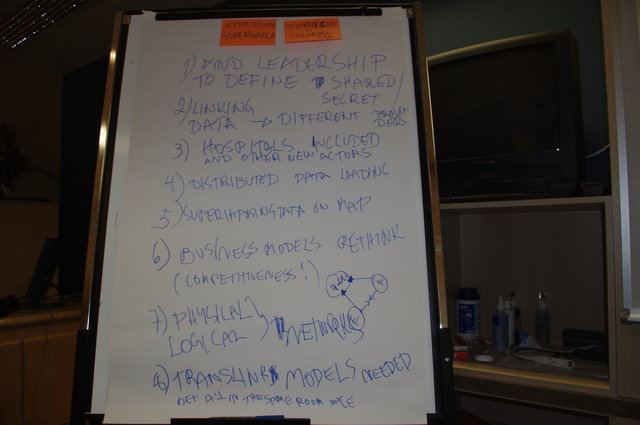 INSTITUTIONAL
GOVERNANCE
SERVICES
1) FIND LEADERSHIP
TO DEFINE SHARED/
SECRET
2) LINKING
DATA → DIFFERENT PROVI
DERS
3) HOSPITALS INCLUDED
AND OTHER NEW ACTORS
4) DISTRIBUTED DATA LOADING
5) SUPERIMPOSING DATA ON MAP
6) BUSINESS MODELS RETHINK
(COMPETITIVENESS!)
7) PHYSICAL
LOGICAL ) NETWORKS
8) TRANSLINK MODELS NEEDED
GET ALL IN THE SAME ROOM ONCE